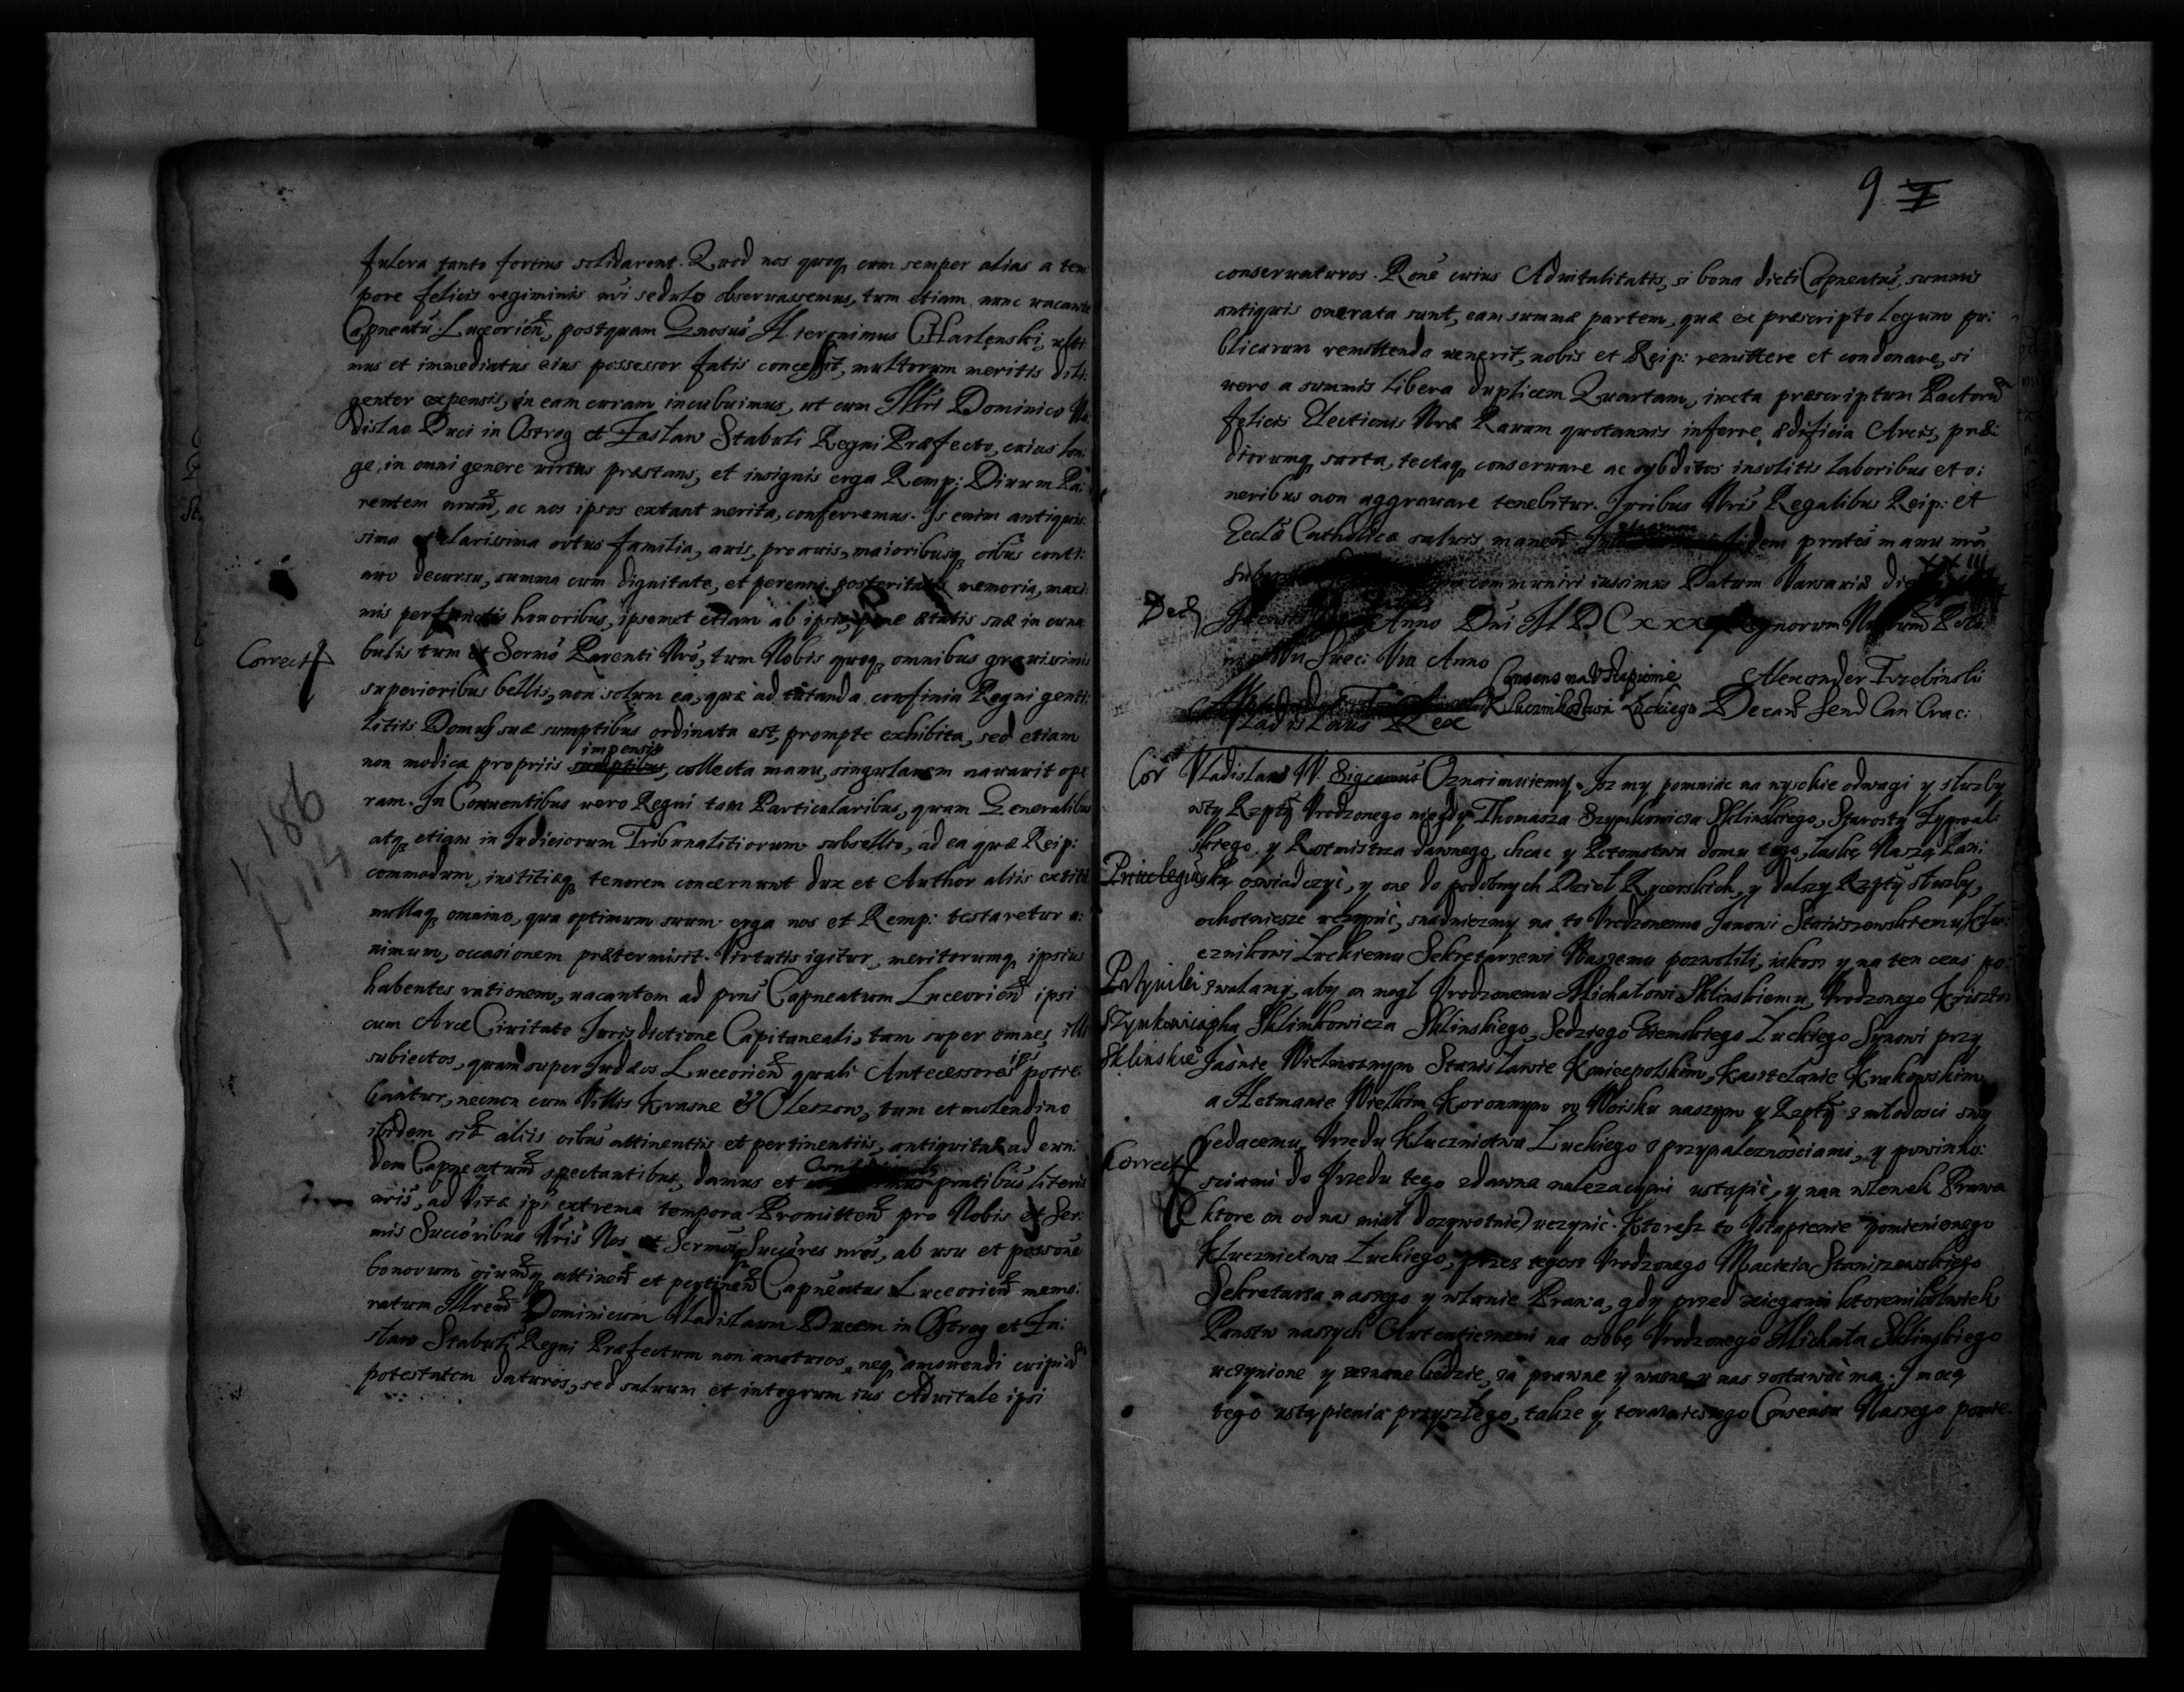 fulcra tanto fortius solidarent. Quod nos quoq, cum semper alias a tem
pore felicis regiminis nri sedulo obseruassemus, tum etiam nunc vacante
Capneatu Luceorien, postquam Gnosus Hieronimus Charlenski, ulti
mus et immediatus eius possessor fatis concessit, multorum meritis dili:
genter expensis, in eam curam incubuimus, ut eum Illri Dominico Vla
dislao Duci in Ostrog et Zaslaw Stabuli Regni Præfecto, cuius lon:
ge in omni genere virtus præstans, et insignis erga Remp: Diuum Pa:
rentem nrum, ac nos ipsos extant merita, conferremus. Is enim antiquis:
sima et clarissima ortus familia, auis, proauis, maioribusq oibus conti:
nuo decursu, summa cum dignitate, et perenni posteritatis memoria, maxi:
mis perfunctis honoribus, ipsemet etiam ab ipsis pene ætatis suæ in cuna
Correct
bulis tum et Sermo Parenti Nro, tum Nobis quoq omnibus grauissimis
superioribus bellis, non solum ea, quæ ad tutanda confinia Regni genti:
litiis Domus suæ sumptibus ordinata est, prompte exhibita, sed etiam
impensis
non modica propriis sumptibus, collecta manu, singularem nauauit ope
ram. In Conuentibus vero Regni tam Particularibus, quam Generalibus
186
atq etiam in Iudiciorum Tribunalitiorum subsellio, ad ea quæ Reip:
commodum, iustitiæq tenorem concernunt dux et Author aliis extitit
nullaq omnino, qua optimum suum erga nos et Remp: testaretur a:
nimum, occasionem prætermisit. Virtutis igitur, meritorumq ipsius
habentes rationem, vacantem ad prns Capneatum Luceorien ipsi
cum Arce Ciuitate Iurisdictione Capitaneali, tam super omnes illi
subiectos, quam super Iudæos Luceorien quali Antecessores ipsi potie
bantur, necnon cum Villis Krasne & Oleszow, tum et molendino
ibidem aliis oibus attinentiis et pertinentiis, antiquitus ad eun:
dem Capneatum spectantibus, damus et conferimus prntibus literis
nris, ad Vitæ ips extrema tempora. Promitten pro Nobis et Ser:
mis Succoribus Nris Nos et Sermos Succores nros, ab usu et possone
bonorum oiumq attinen et pertinen Capneatus Luceorien memo:
ratum Illrem Dominicum Vladislaum Ducem in Ostrog et Za:
slaw Stabuli Regni Præfectum non amoturos, neq amouendi cuipiam
potestatem daturos, sed saluum et integrum ius Aduitale ipsi
9 7
conseruaturos. Rone cuius Aduitalitatis, si bona dicti Capneatus, summis
antiquis onerata sunt, eam summæ partem, quæ ex præscripto legum pu:
blicarum remittenda uenerit, nobis et Reip: remittere et condonare, si
vero a summis libera duplicem Quartam, iuxta præscriptum Pactorum
felicis Electionis Nræ Rauam quotannis inferre, ædificia Arcis, præ:
diorumq sarta, tectaq conseruare ac subditos insolitis laboribus et o:
neribus non aggrauare tenebitur. Iuribus Nris Regalibus Reip: et
Eccla Catholicæ saluis manen. fidem prntes manu nra
communiri iussimus Datum Varsauiæ die
Anno Dni MDCxxx Regnorum Nrorum Polo
niæ Suec: Vta Anno
Consens na Vstąpienie
Klucznikostwa Łuckiego
Alexander Trzebinski
Decan Send Can Crac:
Vladislaus Rex
Cor Vladislaus IV. Sigcamus Oznaimuiemy. Isz my pomniąc na wysokie odwagi y służby
Rzptey Vrodzonego niegdy Thomasza Szymkowicza Sklinskiego, Starosty Zygwul:
skiego y Rotmistrza dawnego, chcąc y Potomstwu domu tego, łaskę Naszą Pań:
ską oswiadczyć, y one do podobnych Dzieł Rycerskich, y dalszy Rzpty służby,
ochotniesze uczynić, snadniezmy na to Vrodzonemu Janowi Staniszewskiemu Klu:
cznikowi Luckiemu Sekretarzewi Naszemu pozwolili, iakosz y na ten czas po:
zwalamy, aby on mogł Vrodzonemu Michałowi Sklinskiemu, Vrodzonego Krisztos
Szymkowicza
Sklinskie
pha Sklimkowicza Sklinskiego, Sedziego Ziemskiego Łuckiego Synowi przy
Jasnie Wielmoznym Stanisławie Koniecpolskim, Kasztelanie Krakowskim
a Hetmanie Wielkim Koronnym w Woisku naszym y Rzpty z młodosci swy
Correct
bedacemu Vrzedu Klucznictwa Łuckiego z przynaleznosciami, y powinno:
sciami do Vrzedu tego zdawna nalezacymi ustąpić, y nan wlewek Prawa
ktore on od nas miał dozywotnie uczynić. Ktoresz to Vstapienie pomienionego
Klucznictwa Łuckiego, przez tegosz Vrodzonego Macieia Staniszewskiego
Sekretarza naszego y wlanie Prawa, gdy przed xiegami ktoremikolwiek
Panstw naszych Autentiecznemi na osobę Vrodzonego Michała Sklinskiego
uczynione y zeznane bedzie, za prawne y wazne u nas zostawać ma. I mocą
tego ustąpienia przyszłego, także y teraznieszego Consensu Naszego